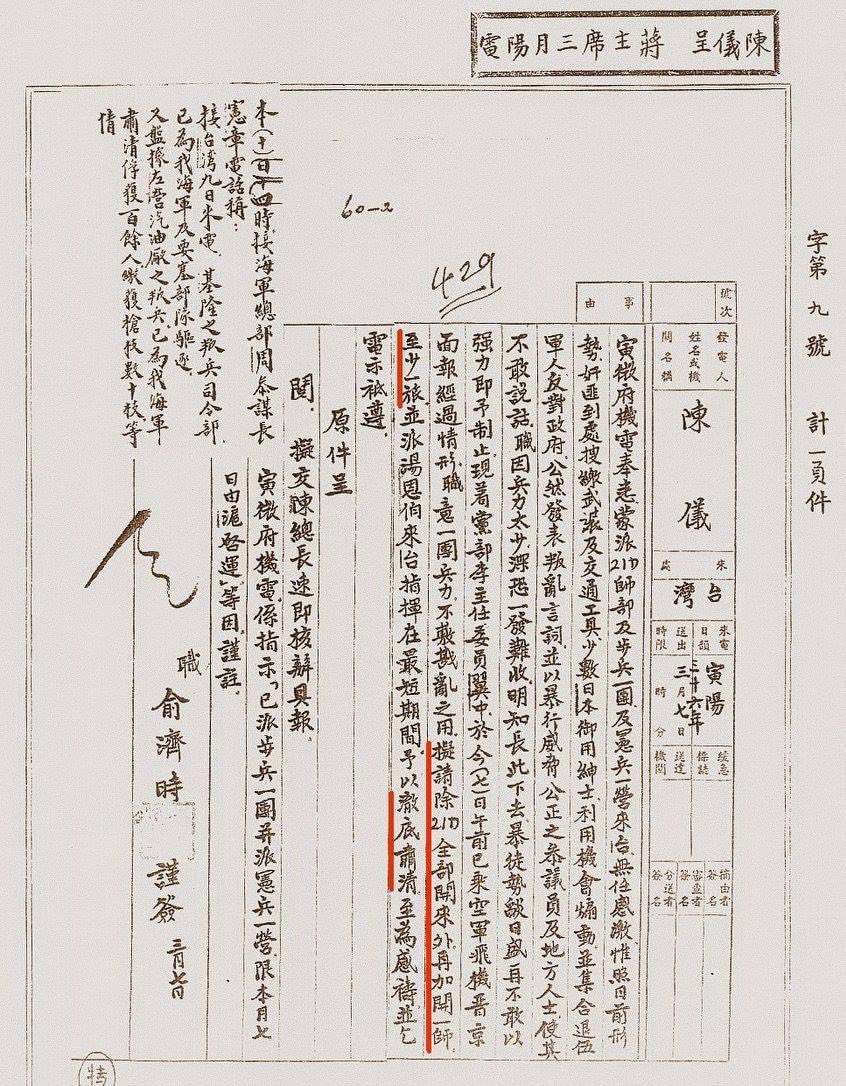 陳儀呈 蔣主席三月陽電
字第九號 計一頁件
號次
發電人姓名或機關名稱
陳儀
來處
台灣
來電日韻
送出時限
寅陽
三十六年
三月七日
時 分
緩急標誌
送達機關
摘由者簽名
審查者簽名
分送者簽名
事由
寅微府機電奉悉蒙派21D師部及步兵一團及憲兵一營來台無任感激惟照目前形
勢奸匪到處搜繳武裝及交通工具少數日本御用紳士利用機會煽動並集合退伍
軍人反對政府公然發表叛亂言詞並以暴行威脅公正之參議員及地方人士使其
不敢說話職因兵力太少深恐一發難收明知長此下去暴徒勢燄日盛再不敢以
強力即予制止現著黨部李主任委員翼中於今(七)日午前已乘空軍飛機晋京
面報經過情形職意一團兵力不敷戡亂之用擬請除21D全部開來外再加開一師
至少一旅並派湯恩伯來台指揮在最短期間予以澈底肅清至為感禱並乞
電示祗遵
原件呈
閱. 擬交陳總長速即核辦具報
寅微府機電係指示「已派步兵一團并派憲兵一營限本月七
日由滬啓運」等因謹註
職俞濟時謹簽 三月七日
429
60-2
本(十)日十四時接海軍總部周參謀長
憲章電話稱:
接台灣九日來電.基隆之叛兵司令部
已為我海軍及要塞部隊驅逐
又盤據左營汽油廠之叛兵已為我海軍
肅清俘獲百餘人繳獲槍枝數十枝等
情
特